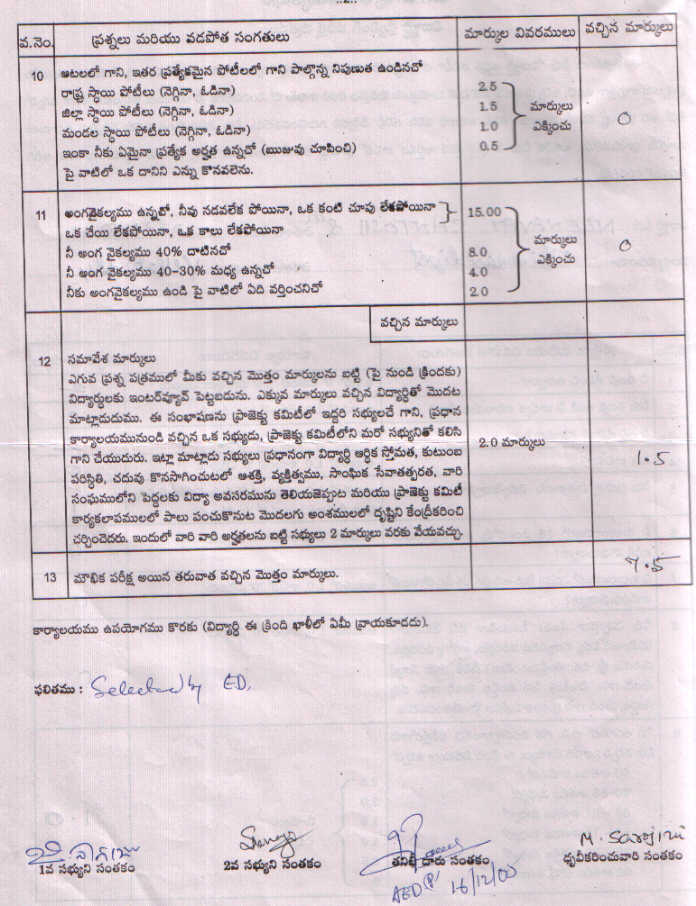 ..2..
వ.నెం. ప్రశ్నలు మరియు వడపోత సంగతులు మార్కుల వివరములు వచ్చిన మార్కులు
10 ఆటలలో గాని, ఇతర ప్రత్యేకమైన పోటీలలో గాని పాల్గొన్న నిపుణత ఉండినచో
రాష్ట్ర స్థాయి పోటీలు (నెగ్గినా, ఓడినా) 2.5
జిల్లా స్థాయి పోటీలు (నెగ్గినా, ఓడినా) 1.5 మార్కులు 0
మండల స్థాయి పోటీలు (నెగ్గినా, ఓడినా) 1.0 ఎక్కించు
ఇంకా నీకు ఏమైనా ప్రత్యేక అర్హత ఉన్నచో (ఋజువు చూపించి) 0.5
పై వాటిలో ఒక దానిని ఎన్ను కొనవలెను.
11 అంగవైకల్యము ఉన్నచో, నీవు నడవలేక పోయినా, ఒక కంటి చూపు లేకపోయినా 15.00
ఒక చేయి లేకపోయినా, ఒక కాలు లేకపోయినా మార్కులు 0
నీ అంగ వైకల్యము 40% దాటినచో 8.0 ఎక్కించు
నీ అంగ వైకల్యము 40-30% మధ్య ఉన్నచో 4.0
నీకు అంగవైకల్యము ఉండి పై వాటిలో ఏది వర్తించనిచో 2.0
వచ్చిన మార్కులు
12 సమావేశ మార్కులు
ఎగువ ప్రశ్న పత్రములో మీకు వచ్చిన మొత్తం మార్కులను బట్టి (పై నుండి క్రిందకు)
విద్యార్థులకు ఇంటర్‌వ్యూవ్ పెట్టబడును. ఎక్కువ మార్కులు వచ్చిన విద్యార్థితో మొదట
మాట్లాడుదుము. ఈ సంభాషణను ప్రాజెక్టు కమిటీలో ఇద్దరి సభ్యులచే గాని, ప్రధాన
కార్యాలయమునుండి వచ్చిన ఒక సభ్యుడు, ప్రాజెక్టు కమిటీలోని మరో సభ్యునితో కలిసి 2.0 మార్కులు
గాని చేయుదురు. ఇట్లా మాట్లాడు సభ్యులు ప్రధానంగా విద్యార్థి ఆర్థిక స్తోమత, కుటుంబ 1.5
పరిస్థితి, చదువు కొనసాగించుటలో ఆశక్తి, వ్యక్తిత్వము, సాంఘిక సేవాతత్పరత, వారి
సంఘములోని పెద్దలకు విద్యా అవసరమును తెలియజెప్పుట మరియు ప్రాజెక్టు కమిటీ
కార్యకలాపములలో పాలు పంచుకొనుట మొదలగు అంశములలో దృష్టిని కేంద్రీకరించి
చర్చించెదరు. ఇందులో వారి వారి అర్హతలను బట్టి సభ్యులు 2 మార్కులు వరకు వేయవచ్చు.
13 మౌఖిక పరీక్ష అయిన తరువాత వచ్చిన మొత్తం మార్కులు. 7.5
కార్యాలయము ఉపయోగము కొరకు (విద్యార్థి ఈ క్రింది ఖాళీలో ఏమీ వ్రాయకూడదు).
ఫలితము : Selected by ED.
M. Sarojini
1వ సభ్యుని సంతకం 2వ సభ్యుని సంతకం తనిఖీ దారు సంతకం ధృవీకరించువారి సంతకం
16/12/00